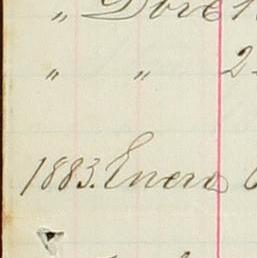 „ Dbre 1
„ „ 2
1883. Enero